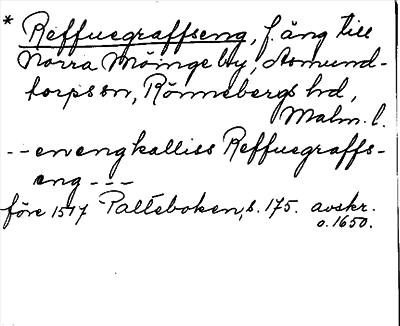 * Reffuegraffseng, f. äng till
Norra Möinge by, Asmund-
torps sn, Rönnebergs hd,
Malm. l.
-- en eng kalliss Reffuegraffs-
eng ---
före 1517 Palteboken, s. 175. avskr.
o. 1650.